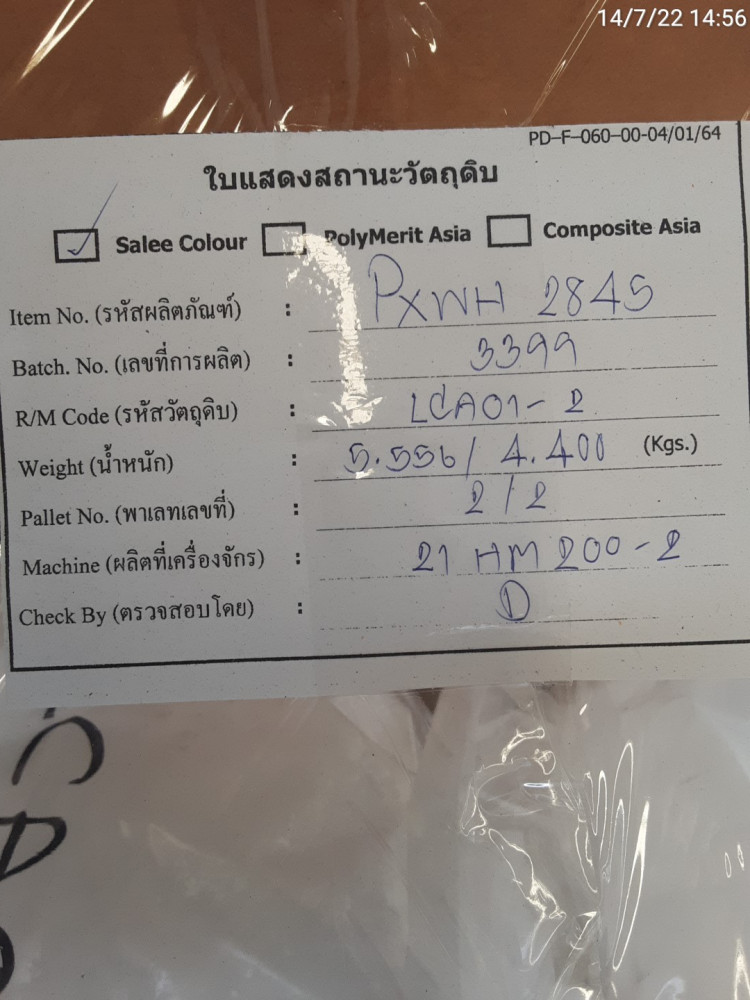 14/7/22 14:56
PD-F-060-00-04/01/64
ใบแสดงสถานะวัตถุดิบ
Salee Colour PolyMerit Asia Composite Asia
Item No. (รหัสผลิตภัณฑ์) : PXWH 2845
Batch. No. (เลขที่การผลิต) : 3399
R/M Code (รหัสวัตถุดิบ) : LCA01-2
Weight (น้ำหนัก) : 5.556/ 4.400 (Kgs.)
Pallet No. (พาเลทเลขที่) : 2/2
Machine (ผลิตที่เครื่องจักร) : 21 HM 200-2
Check By (ตรวจสอบโดย) : D